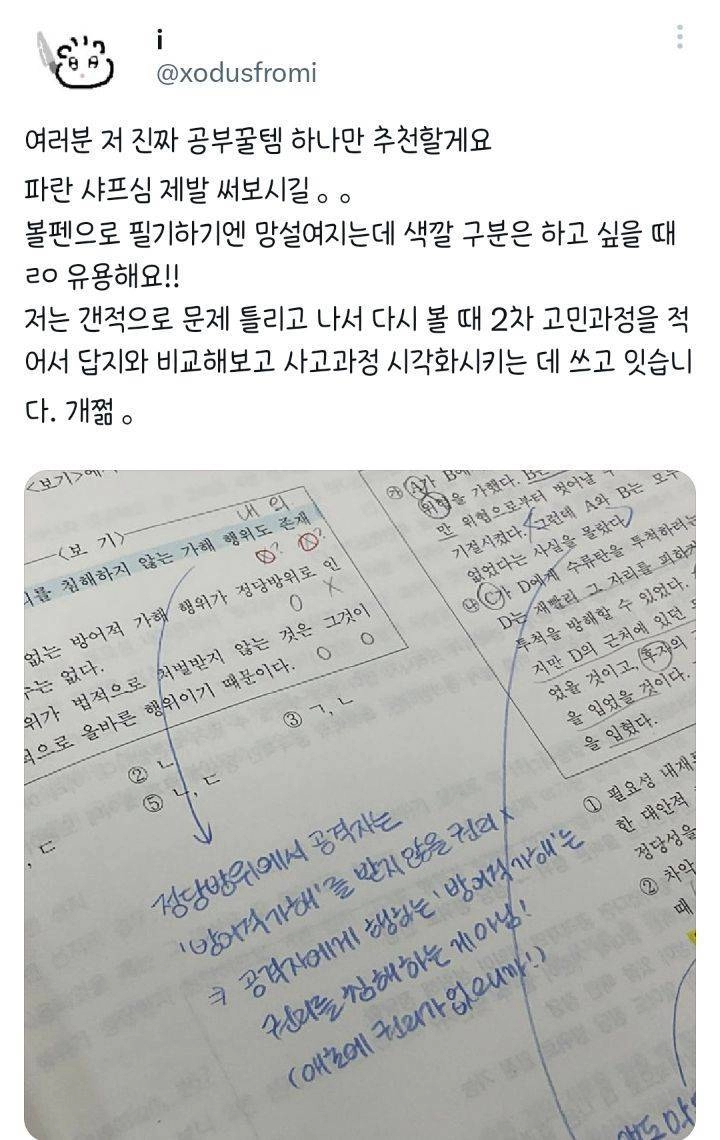 i
@xodusfromi
여러분 저 진짜 공부꿀템 하나만 추천할게요
파란 샤프심 제발 써보시길 。。
볼펜으로 필기하기엔 망설여지는데 색깔 구분은 하고 싶을 때
ㄹㅇ 유용해요!!
저는 갠적으로 문제 틀리고 나서 다시 볼 때 2차 고민과정을 적
어서 답지와 비교해보고 사고과정 시각화시키는 데 쓰고 잇습니
다. 개쩖 。
<보기>에
<보 기>
내 의
를 침해하지 않는 가해 행위도 존재
없는 방어적 가해 행위가 정당방위로 인
는 없다.
위가 법적으로 처벌받지 않는 것은 그것이
적으로 올바른 행위이기 때문이다.
② ㄴ
③ ㄱ, ㄴ
, ㄷ
⑤ ㄴ, ㄷ
㉮ A가 B에
위협을 가했다. B는
만 위협으로부터 벗어날 수
기절시켰다. 그런데 A와 B는 모두
없었다는 사실을 몰랐다.
㉯ C가 D에게 수류탄을 투척하려는
D는 재빨리 그 자리를 피하
투척을 방해할 수 있었다.
지만 D의 근처에 있던
었을 것이고, 후자의
을 입었을 것이다.
을 입혔다.
① 필요성 내재
한 대안적
정당성을
② 차악
때
정당방위에서 공격자는
'방어적 가해'를 받지 않을 권리 x
⇒ 공격자에게 행하는 '방어적 가해'는
권리를 침해하는 게 아님!
(애초에 권리가 없으니까!)